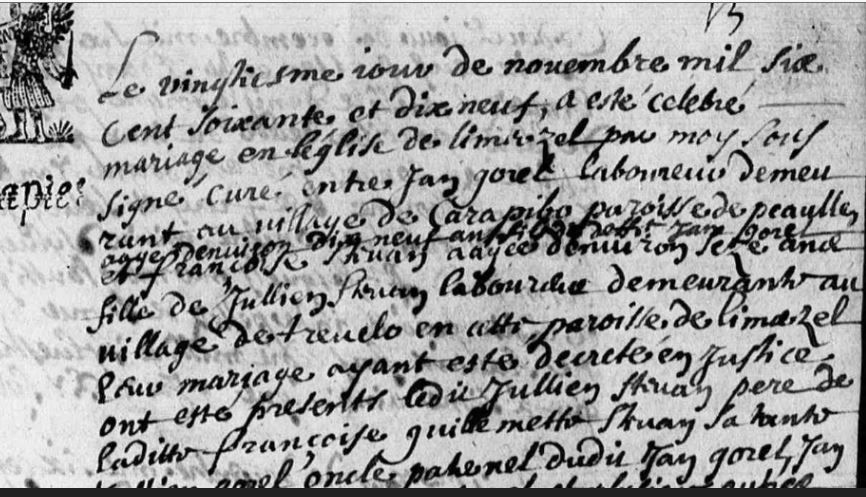 Le vingtiesme iour de novembre mil six
cent soixante et dix neuf, a esté celebré
mariage en l'église de limerzel par moy sous
signé curé entre Jan gorel laboureur demeu
rant au village de Carapibo paroisse de peaulle
aagé denviron dix neuf ans Jan gorel
et francoise Skuan aagée denviron seze ans
fille de Jullien Skuan laboureur demeurante au
village de trevelo en cette paroisse de limerzel
leur mariage ayant esté decreté en Justice
ont esté presents ledit Jullien Skuan pere de
laditte françoise guillemette Skuan sa tante
gorel oncle paternel dudit Jan gorel, Jan